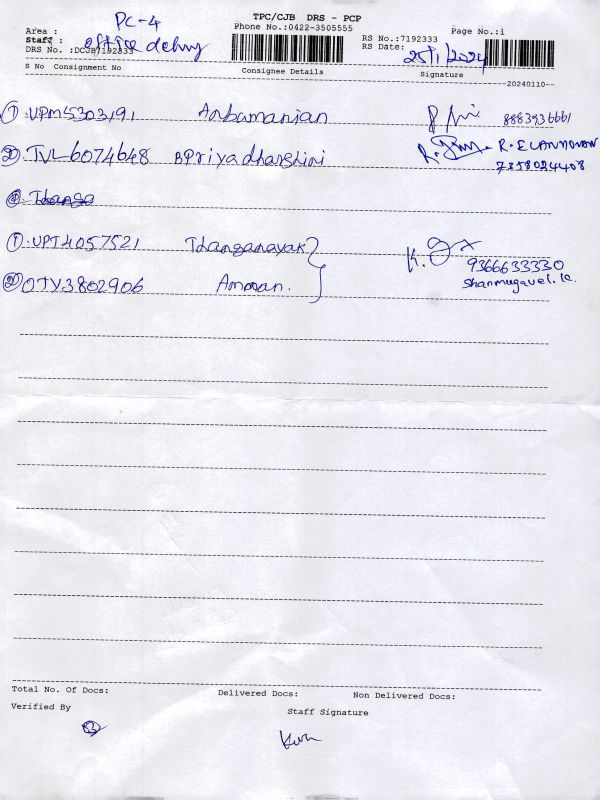 PC-4
TPC/CJB DRS - PCP
Phone No.:0422-3505555
Area :
Staff : office delivy
DRS No. :DCJB7192333
RS No.:7192333
Page No.:1
RS Date: 25/1/2024
S No Consignment No Consignee Details Signature
--20240110--
① UPM5303191 Anbamanian 8883936661
② TVL6074648 BPriyadharshini R. ELANNOVAN
7358024408
③ Thanga
① UPT4057521 Thanganayak
9366633330
② OTY3802906 Amman. Shanmugavel. K.
Total No. Of Docs: Delivered Docs: Non Delivered Docs:
Verified By Staff Signature
③